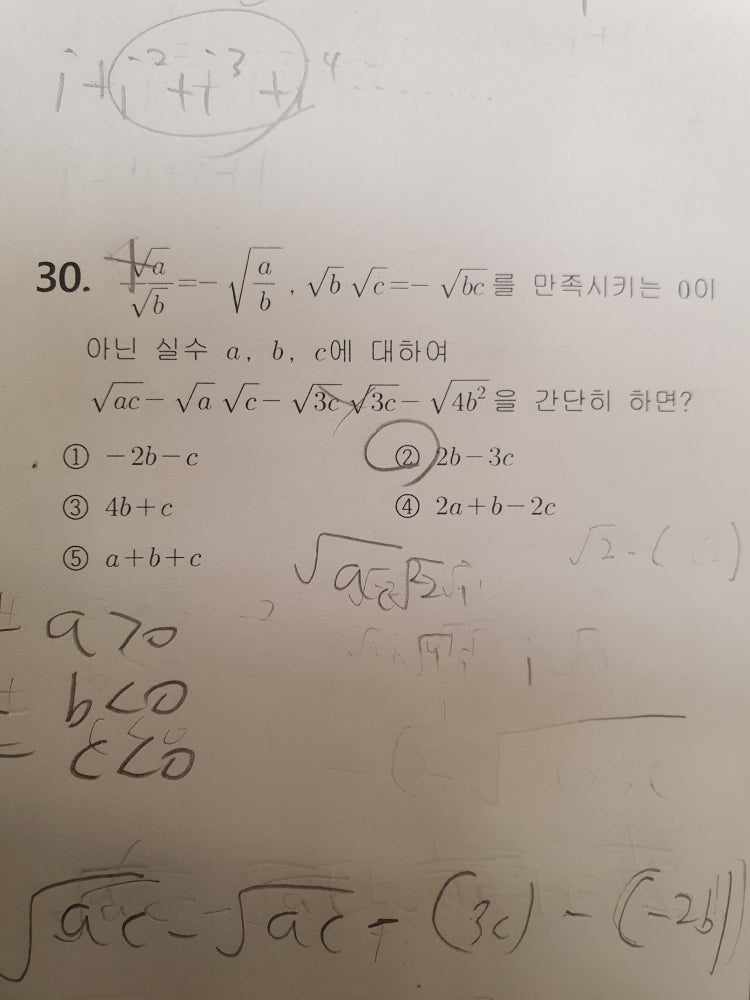 i + i² + i³ + i⁴ ........
30. √a/√b = -√(a/b), √b √c = -√(bc) 를 만족시키는 0이
아닌 실수 a, b, c에 대하여
√(ac) - √a √c - √(3c) √(3c) - √(4b²) 을 간단히 하면?
① -2b-c ② 2b-3c
③ 4b+c ④ 2a+b-2c
⑤ a+b+c
a>0
b<0
c<0
√(ac) - √(ac) - (3c) - (-2b)